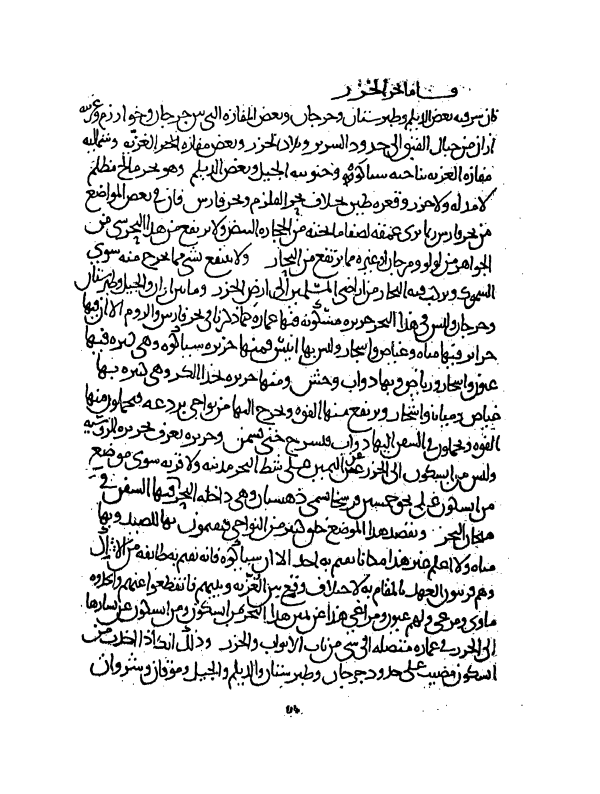 واما بحر الخزر
فان شرقيه بعض الديلم وطبرستان وجرجان وبعض المفازة التي بين جرجان وخوارزم وغربيه
اران من جبال القبق الى حدود السرير وبلاد الخزر وبعض مفازه الغزيه وشماليه
مفازه الغزيه بناحيه سياكوه وجنوبيه الجيل وبعض الديلم وهو بحر مالح مظلم
لا مد له ولا جزر وقعره طين بخلاف بحر القلزم وبحر فارس فان في بعض المواضع
من بحر فارس ربما يرى عمقه لصفا ما تحته من الحجاره البيض ولا يرتفع من هذا البحر شي من
الجواهر من لولو ومرجان وغيره مما يرتفع من البحار ولا ينتفع بشي مما يخرج منه سوى
السموك ويركب فيه التجار من اراضي المسلمين الى ارض الخزر وما بين اران والجيل وطبرستان
وجرجان وليس في هذا البحر جزيره مسكونه فيها عماره كما ذكرنا في بحر فارس والروم الا ان فيها
جزاير فيها مياه وغياض واشجار وليس بها انيس فمنها جزيره سياكوه وهي كبيره فيها
عيون واشجار وغياض وبها دواب وحش ومنها جزيره بحذا الكر وهي كبيره بها
غياض ومياه واشجار ويرتفع منها الفوه ويخرج اليها من نواحي بردعه فيحملون منها
الفوه ويحملون في السفن اليها دواب فتسرح حتى تسمن وجزيره تعرف بجزيره الروسيه
وليس من ابسكون الى الخزر عن اليمين على شط البحر مدينه ولا قريه سوى موضع
من ابسكون على نحو خمسين فرسخا يسمى دهستان وهي داخله البحر فيها السفن في
هيجان البحر ويقصد هذا الموضع خلق كثير من النواحي فيقيمون بها للصيد وبها
مياه ولا اعلم غير هذا مكانا يقيم به احد الا ان سياكوه فانه تقيم به طايفه من الاتراك
وهم قريبون العهد بالمقام به لاختلاف وقع بين الغزيه وبينهم فانقطعوا عنهم واتخذوه
ماوى ومرعى ولهم عيون ومراعي هذا عن يمين هذا البحر من ابسكون ومن ابسكون عن يسارها
الى الخزر في عماره متصله الا شي من باب الابواب والخزر وذلك انك اذا اخذت من
ابسكون مضيت على حدود جرجان وطبرستان والديلم والجيل وموقان وشروان